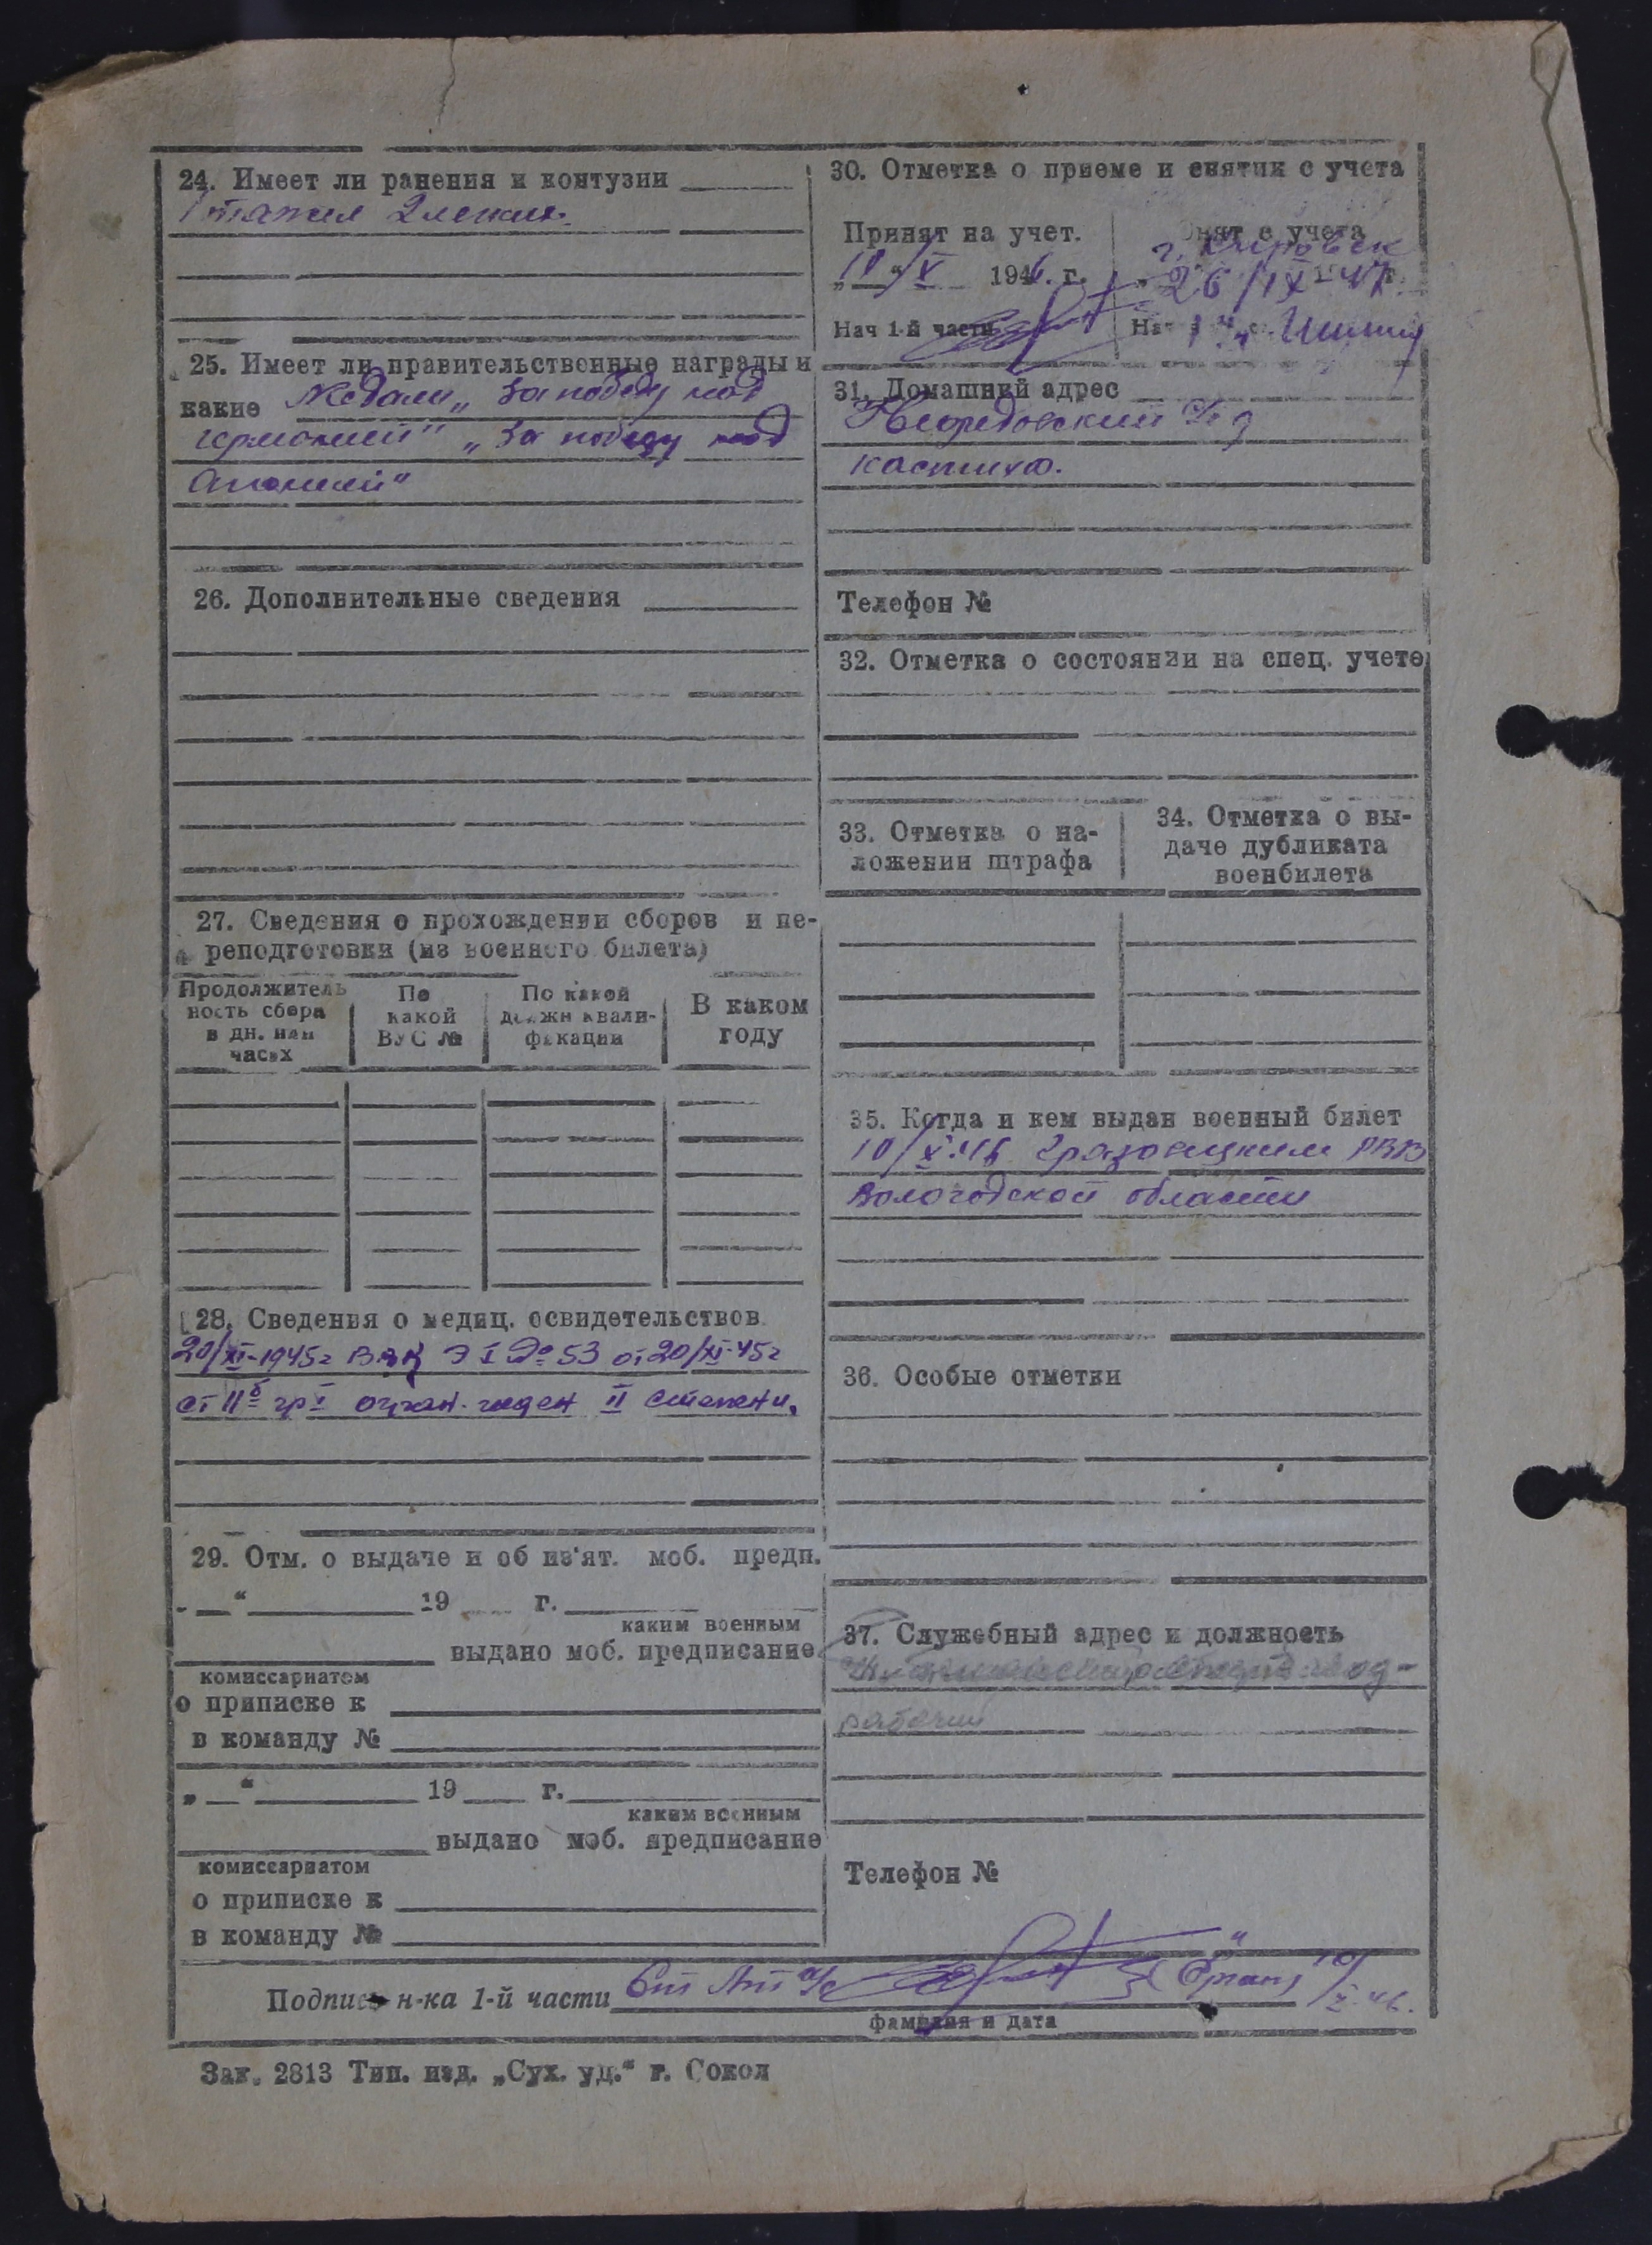 24. Имеет ли ранения и контузии
1 тяжел 2 легких.
25. Имеет ли правительственные награды и
какие Медали „За победу над
германией" „За победу над
Японией"
26. Дополнительные сведения
27. Сведения о прохождении сборов и пе-
реподготовки (из военного билета)
Продолжитель
ность сбора
в дн. или
часах
По
какой
ВУС №
По какой
должн квали-
фикации
В каком
году
28. Сведения о медиц. освидетельствов.
20/XI-1945г ВВК Э I № 53 от 20/XI-45г
ст IIб гр I огран. годен II степени.
29. Отм. о выдаче и об из'ят. моб. предп.
„ “ 19 г.
каким военным
выдано моб. предписание
комиссариатом
о приписке к
в команду №
„ “ 19 г.
каким военным
выдано моб. предписание
комиссариатом
о приписке к
в команду №
30. Отметка о приеме и снятии с учета
Принят на учет.
„10“ X 1946. г.
Нач 1-й части
Снят с учета
г. Кировск
26/IX-47 г.
31. Домашний адрес
32. Отметка о состоянии на спец. учете
Телефон №
33. Отметка о на-
ложении штрафа
34. Отметка о вы-
даче дубликата
военбилета
35. Когда и кем выдан военный билет
10/X.46 Грязовецким РВК
Вологодской области
36. Особые отметки
37. Служебный адрес и должность
рабочий
Телефон №
Подпись н-ка 1-й части Ст Лт а/с 10/X.46.
фамилия и дата
Зак. 2813 Тип. изд. „Сух. уд.“ г. Сокол